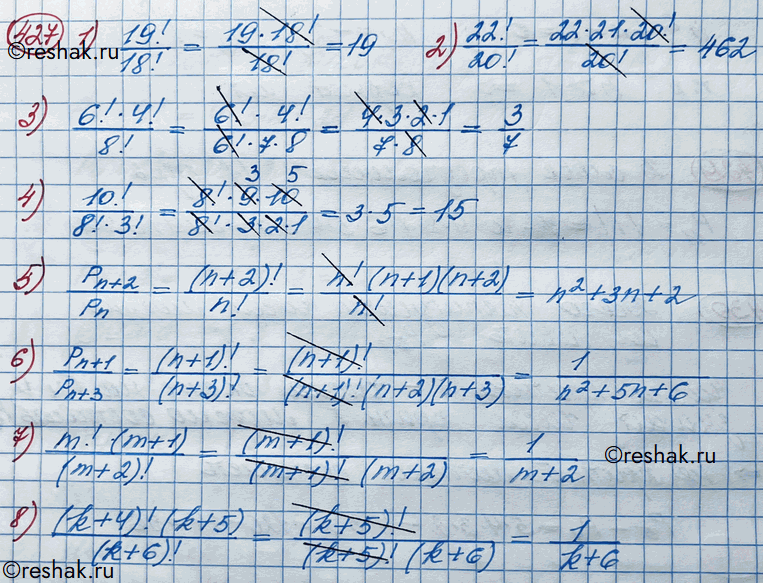 427 1) 19!/18! = 19·18!/18! = 19 2) 22!/20! = 22·21·20!/20! = 462
©reshak.ru
3) 6!·4!/8! = 6!·4!/6!·7·8 = 4·3·2·1/7·8 = 3/7
4) 10!/8!·3! = 8!·9·10/8!·3·2·1 = 3·5 = 15
3 5
5) Pn+2/Pn = (n+2)!/n! = n!(n+1)(n+2)/n! = n²+3n+2
6) Pn+1/Pn+3 = (n+1)!/(n+3)! = (n+1)!/(n+1)!(n+2)(n+3) = 1/n²+5n+6
7) m!(m+1)/(m+2)! = (m+1)!/(m+1)!(m+2) = 1/m+2
©reshak.ru
8) (k+4)!(k+5)/(k+6)! = (k+5)!/(k+5)!(k+6) = 1/k+6
©reshak.ru